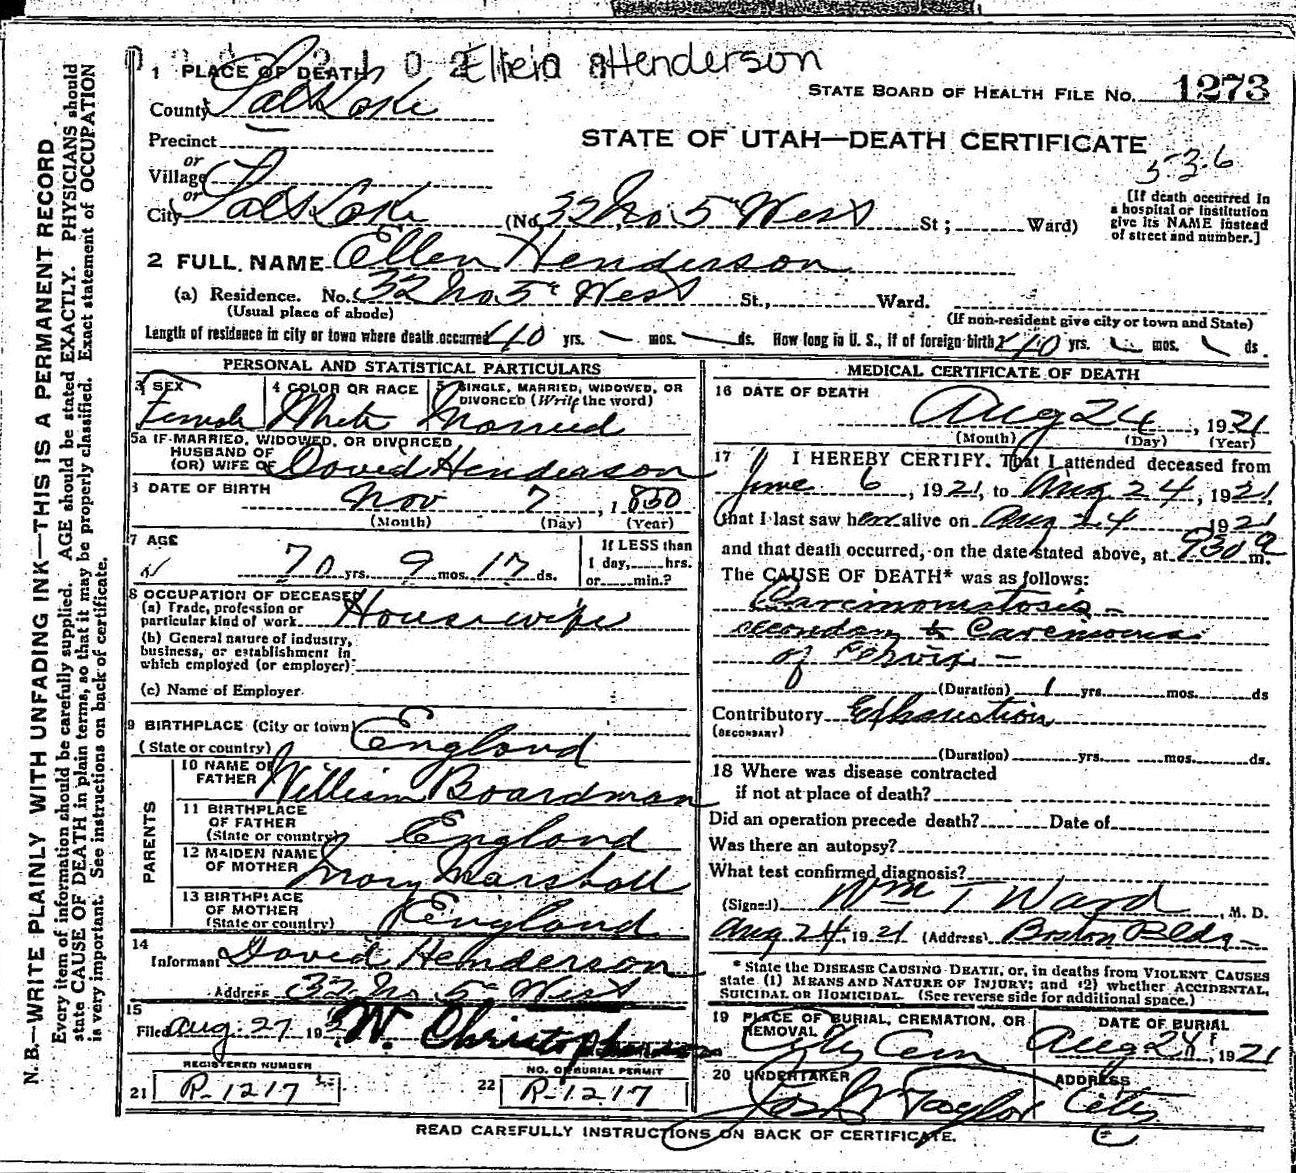 2 1 0 2 Henderson
1 PLACE OF DEATH
County Salt Lake
STATE BOARD OF HEALTH FILE NO. 1273
Precinct
STATE OF UTAH—DEATH CERTIFICATE
536
or
Village
or
City Salt Lake (No. 32 No. 5th West St; Ward)
[If death occurred in
a hospital or institution
give its NAME instead
of street and number.]
2 FULL NAME Ellen Henderson
(a) Residence. No. 32 No. 5th West St., Ward.
(Usual place of abode) (If non-resident give city or town and State)
Length of residence in city or town where death occurred 40 yrs. mos. ds. How long in U. S., if of foreign birth? 40 yrs. mos. ds.
PERSONAL AND STATISTICAL PARTICULARS
3 SEX 4 COLOR OR RACE 5 SINGLE, MARRIED, WIDOWED, OR
DIVORCED (Write the word)
Female White Married
5a IF MARRIED, WIDOWED, OR DIVORCED
HUSBAND OF
(OR) WIFE OF David Henderson
6 DATE OF BIRTH Nov 7, 1850
(Month) (Day) (Year)
7 AGE 70 yrs. 9 mos. 17 ds.
If LESS than
1 day, hrs.
or min.?
8 OCCUPATION OF DECEASED
(a) Trade, profession or
particular kind of work Housewife
(b) General nature of industry,
business, or establishment in
which employed (or employer)
(c) Name of Employer
9 BIRTHPLACE (City or town)
(State or country) England
PARENTS
10 NAME OF
FATHER William Boardman
11 BIRTHPLACE
OF FATHER
(State or country) England
12 MAIDEN NAME
OF MOTHER Mary Marshall
13 BIRTHPLACE
OF MOTHER
(State or country) England
14
Informant David Henderson
Address 32 No 5th West
15
Filed Aug. 27 192 W. Christopherson
REGISTERED NUMBER NO. OF BURIAL PERMIT
21 R-1217 22 R-1217
MEDICAL CERTIFICATE OF DEATH
16 DATE OF DEATH
Aug 24, 1921
(Month) (Day) (Year)
17 I HEREBY CERTIFY. That I attended deceased from
June 6, 1921, to Aug 24, 1921
that I last saw her alive on Aug 24 1921
and that death occurred, on the date stated above, at 930 m.
The CAUSE OF DEATH* was as follows:
Carcinomatosis —
secondary to Carcinoma
of —
(Duration) 1 yrs. mos. ds
Contributory Exhaustion
(SECONDARY)
(Duration) yrs. mos. ds.
18 Where was disease contracted
if not at place of death?
Did an operation precede death? Date of
Was there an autopsy?
What test confirmed diagnosis?
(Signed) Wm T Ward, M. D.
Aug 24, 1921 (Address) Boston Bldg —
* State the DISEASE CAUSING DEATH, or, in deaths from VIOLENT CAUSES
state (1) MEANS AND NATURE OF INJURY; and (2) whether ACCIDENTAL,
SUICIDAL OR HOMICIDAL. (See reverse side for additional space.)
19 PLACE OF BURIAL, CREMATION, OR
REMOVAL City Cem
DATE OF BURIAL
Aug 28, 1921
20 UNDERTAKER ADDRESS
Jos Wm Taylor City
READ CAREFULLY INSTRUCTIONS ON BACK OF CERTIFICATE.
N. B.—WRITE PLAINLY WITH UNFADING INK—THIS IS A PERMANENT RECORD
Every item of information should be carefully supplied. AGE should be stated EXACTLY. PHYSICIANS should
state CAUSE OF DEATH in plain terms, so that it may be properly classified. Exact statement of OCCUPATION
is very important. See instructions on back of certificate.